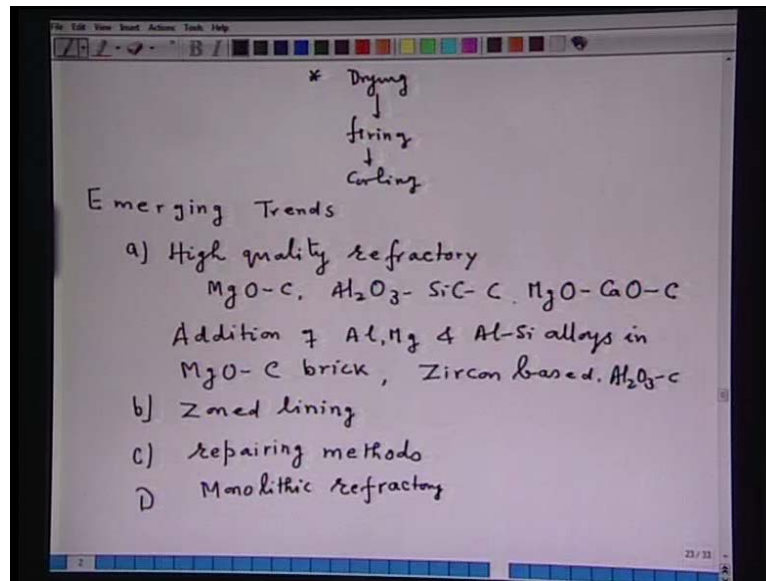 File Edit View Insert Actions Tools Help
B I
* Drying
↓
firing
↓
Cooling
Emerging Trends
a) High quality refractory
MgO-C, Al₂O₃-SiC-C, MgO-CaO-C
Addition of Al, Mg & Al-Si alloys in
MgO-C brick, Zircon based. Al₂O₃-C
b) Zoned lining
c) repairing methods
D Monolithic refractory
23/33
2